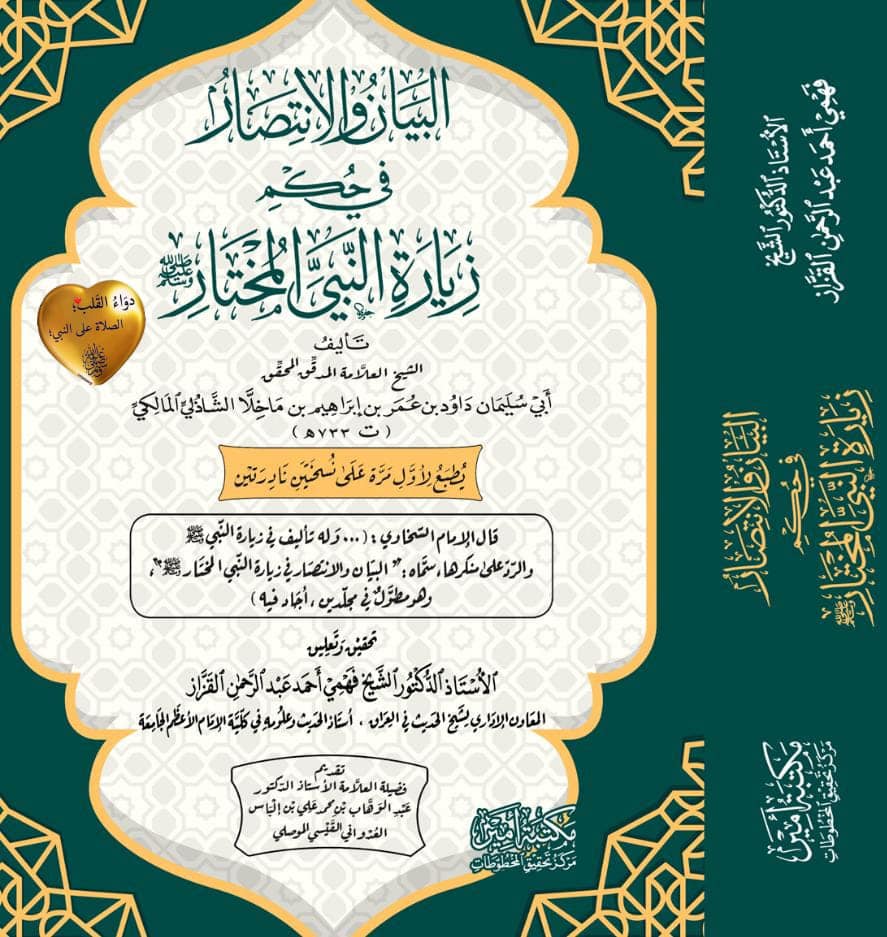 البيان والانتصار
في حكم
زيارة النبي المختار ﷺ
دواءُ القلب؛
الصلاة على النبي؛
ﷺ
تأليف
الشيخ العلامة المدقق المحقق
أبي سليمان داود بن عمر بن إبراهيم بن ماخلا الشاذلي المالكي
( ت ٧٣٣ هـ )
يُطبعُ لأوَّلِ مَرَّة عَلَى نُسخَتَينِ نادِرَتَين
قال الإمام السخاوي : ( ... وله تأليف في زيارة النبي ﷺ
والرد على منكرها ، سمّاه : " البيان والانتصار في زيارة النبي المختار ﷺ " ،
وهو مطوَّلٌ في مجلدين ، أجاد فيه )
تحقيق وتعليق
الأستاذ الدكتور الشيخ فهمي أحمد عبد الرحمن القزاز
المعاون الإداري لشيخ الحديث في العراق . أستاذ الحديث وعلومه في كلية الإمام الأعظم الجامعة
تقديم
فضيلة العلامة الأستاذ الدكتور
عبد الوهاب بن محمد علي بن إلياس
العدواني القيسي الموصلي
مكتبة أمير
مركز تحقيق المخطوطات
الأستاذ الدكتور الشيخ
فهمي أحمد عبد الرحمن القزاز
البيان والانتصار
في حكم
زيارة النبي المختار ﷺ
مكتبة أمير
مركز تحقيق المخطوطات